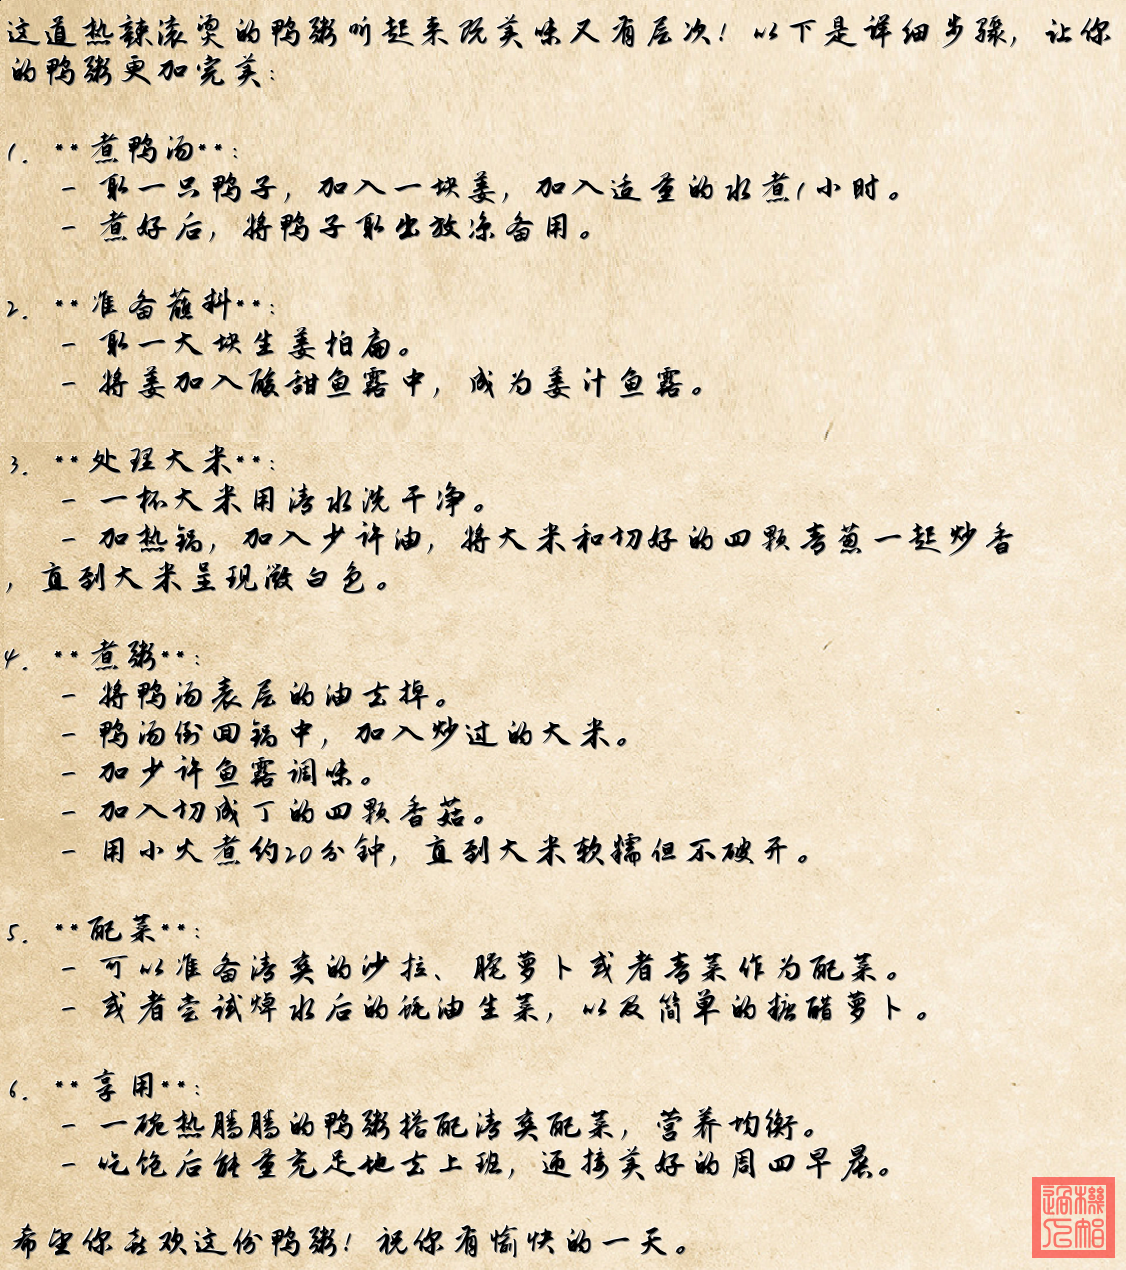 这道热辣滚烫的鸭粥听起来既美味又有层次！以下是详细步骤，让你
的鸭粥更加完美：
1. **煮鸭汤**：
- 取一只鸭子，加入一块姜，加入适量的水煮1小时。
- 煮好后，将鸭子取出放凉备用。
2. **准备蘸料**：
- 取一大块生姜拍扁。
- 将姜加入酸甜鱼露中，成为姜汁鱼露。
3. **处理大米**：
- 一杯大米用清水洗干净。
- 加热锅，加入少许油，将大米和切好的四颗青葱一起炒香
，直到大米呈现微白色。
4. **煮粥**：
- 将鸭汤表层的油去掉。
- 鸭汤倒回锅中，加入炒过的大米。
- 加少许鱼露调味。
- 加入切成丁的四颗香菇。
- 用小火煮约20分钟，直到大米软糯但不破开。
5. **配菜**：
- 可以准备清爽的沙拉、腌萝卜或者青菜作为配菜。
- 或者尝试焯水后的蚝油生菜，以及简单的糖醋萝卜。
6. **享用**：
- 一碗热腾腾的鸭粥搭配清爽配菜，营养均衡。
- 吃饱后能量充足地去上班，迎接美好的周四早晨。
希望你喜欢这份鸭粥！祝你有愉快的一天。